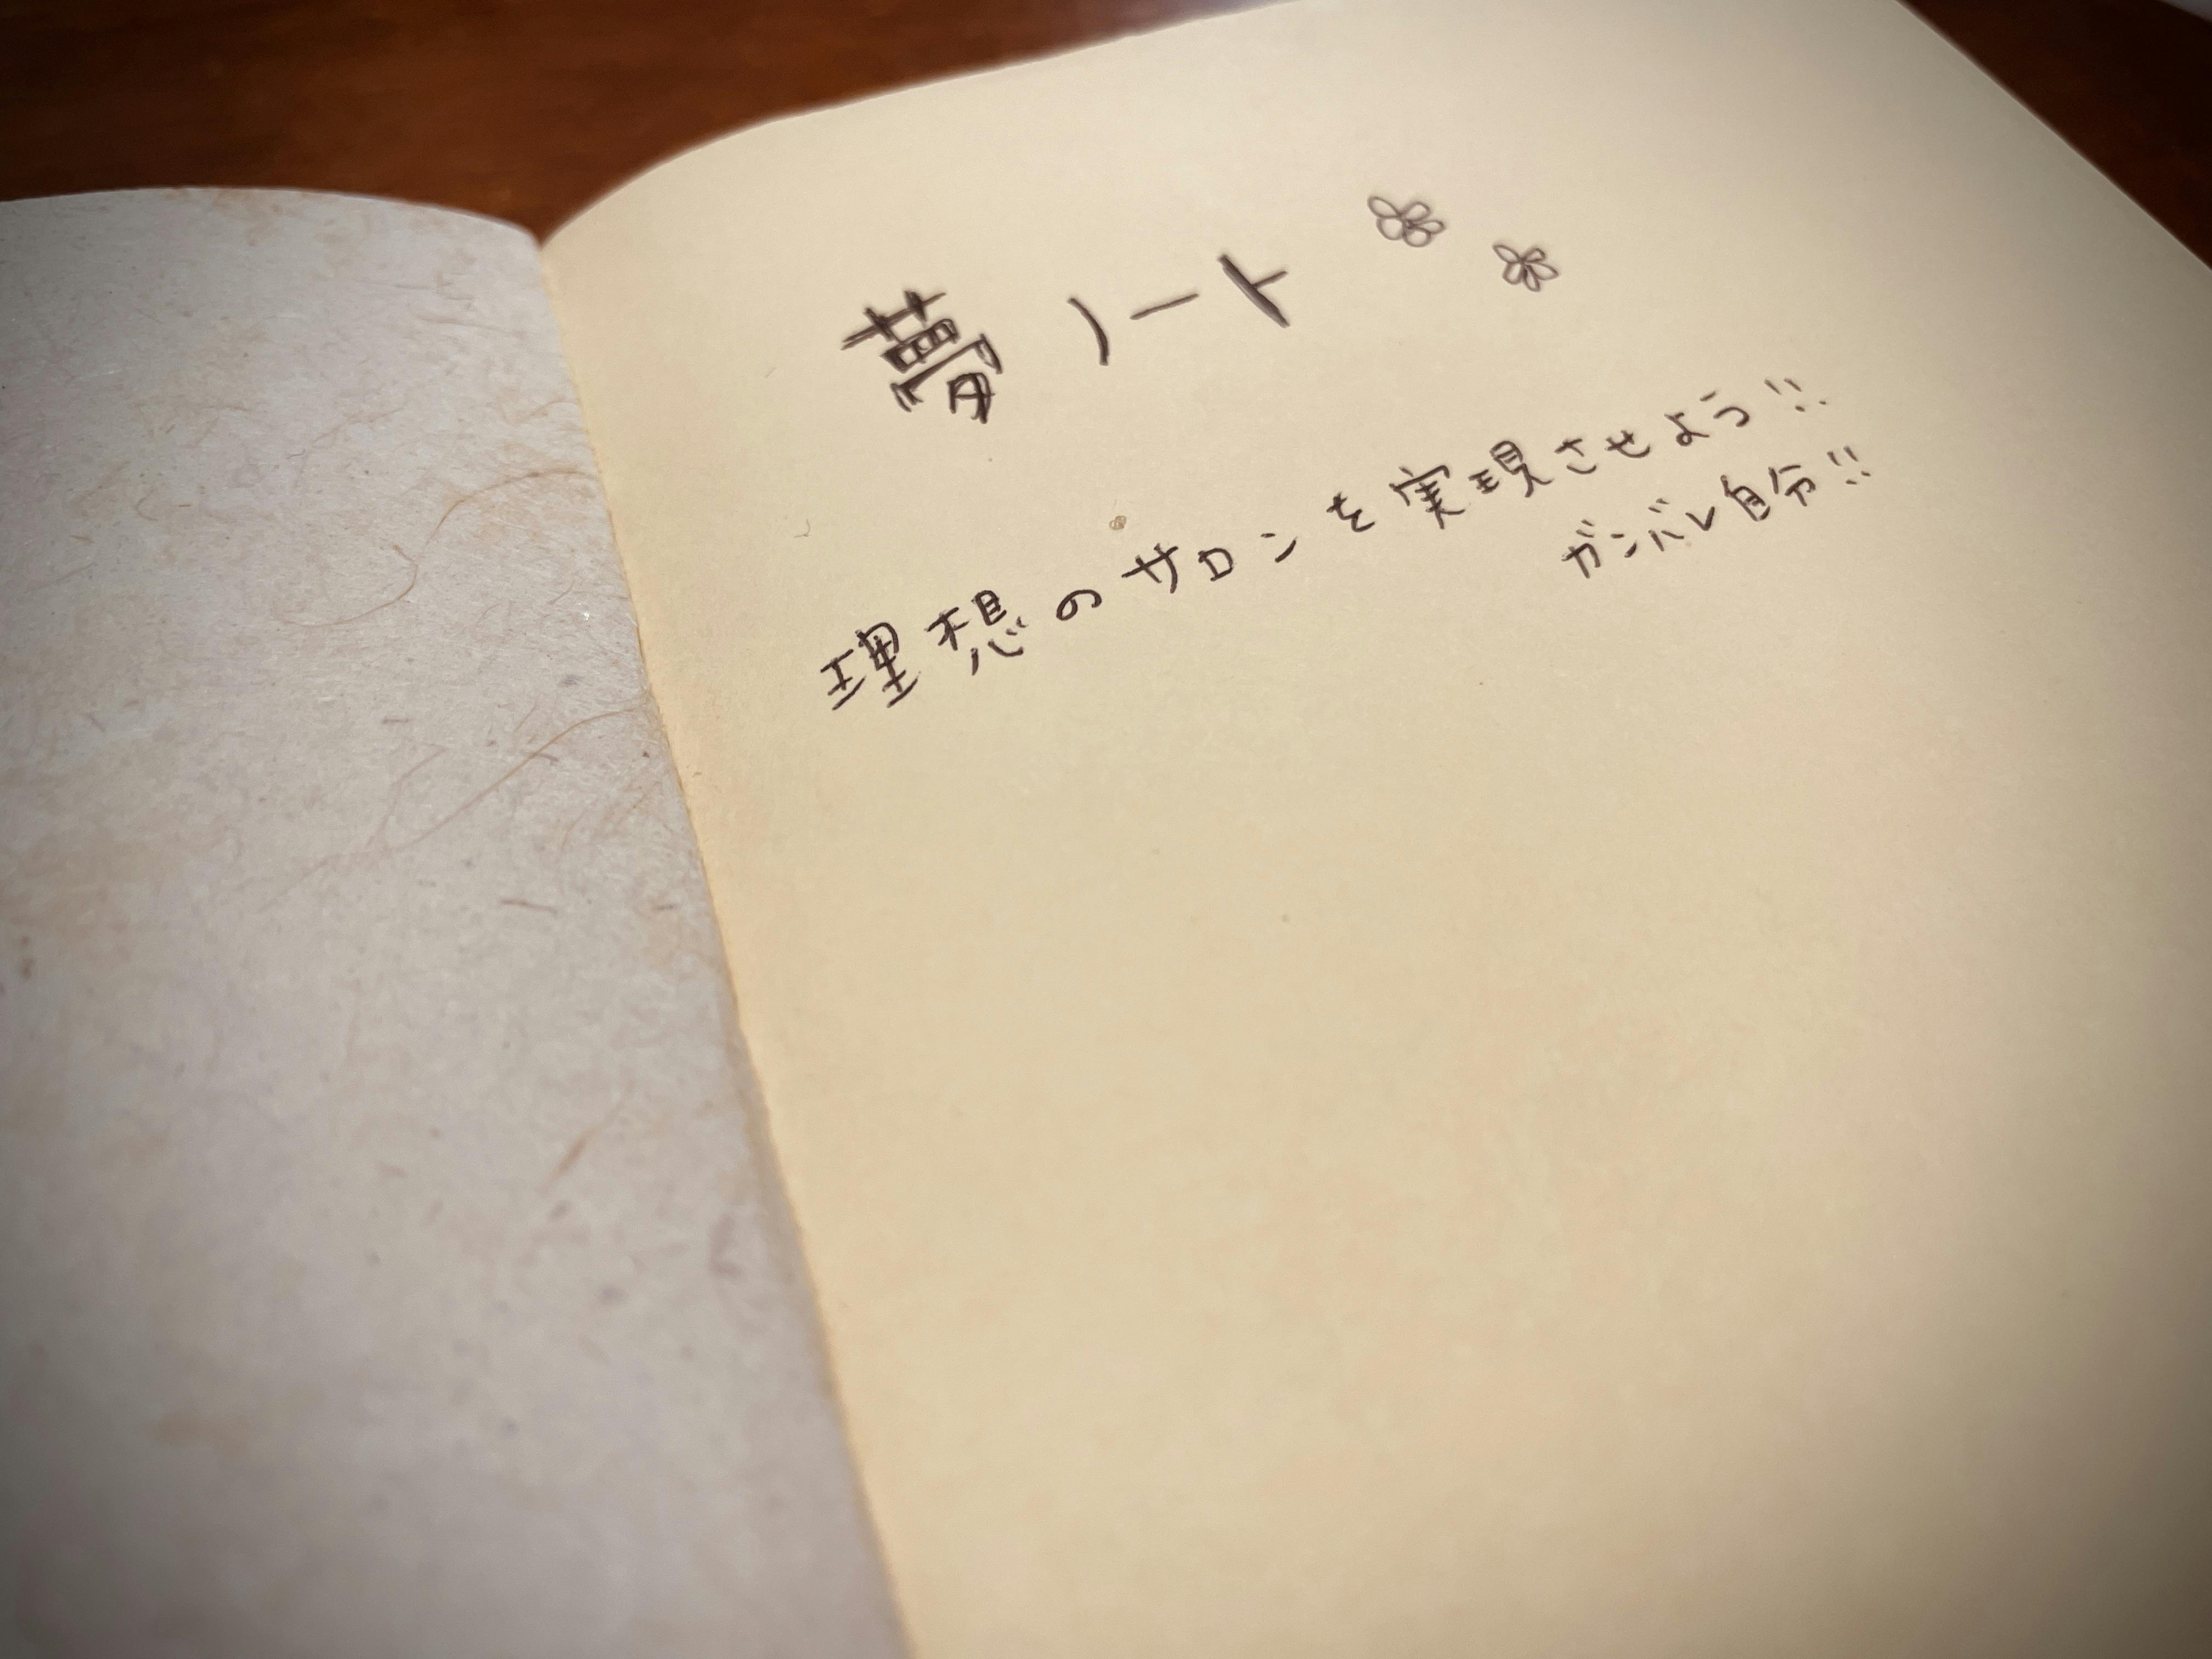 夢ノート
理想のサロンを実現させよう!!
ガンバレ自分!!